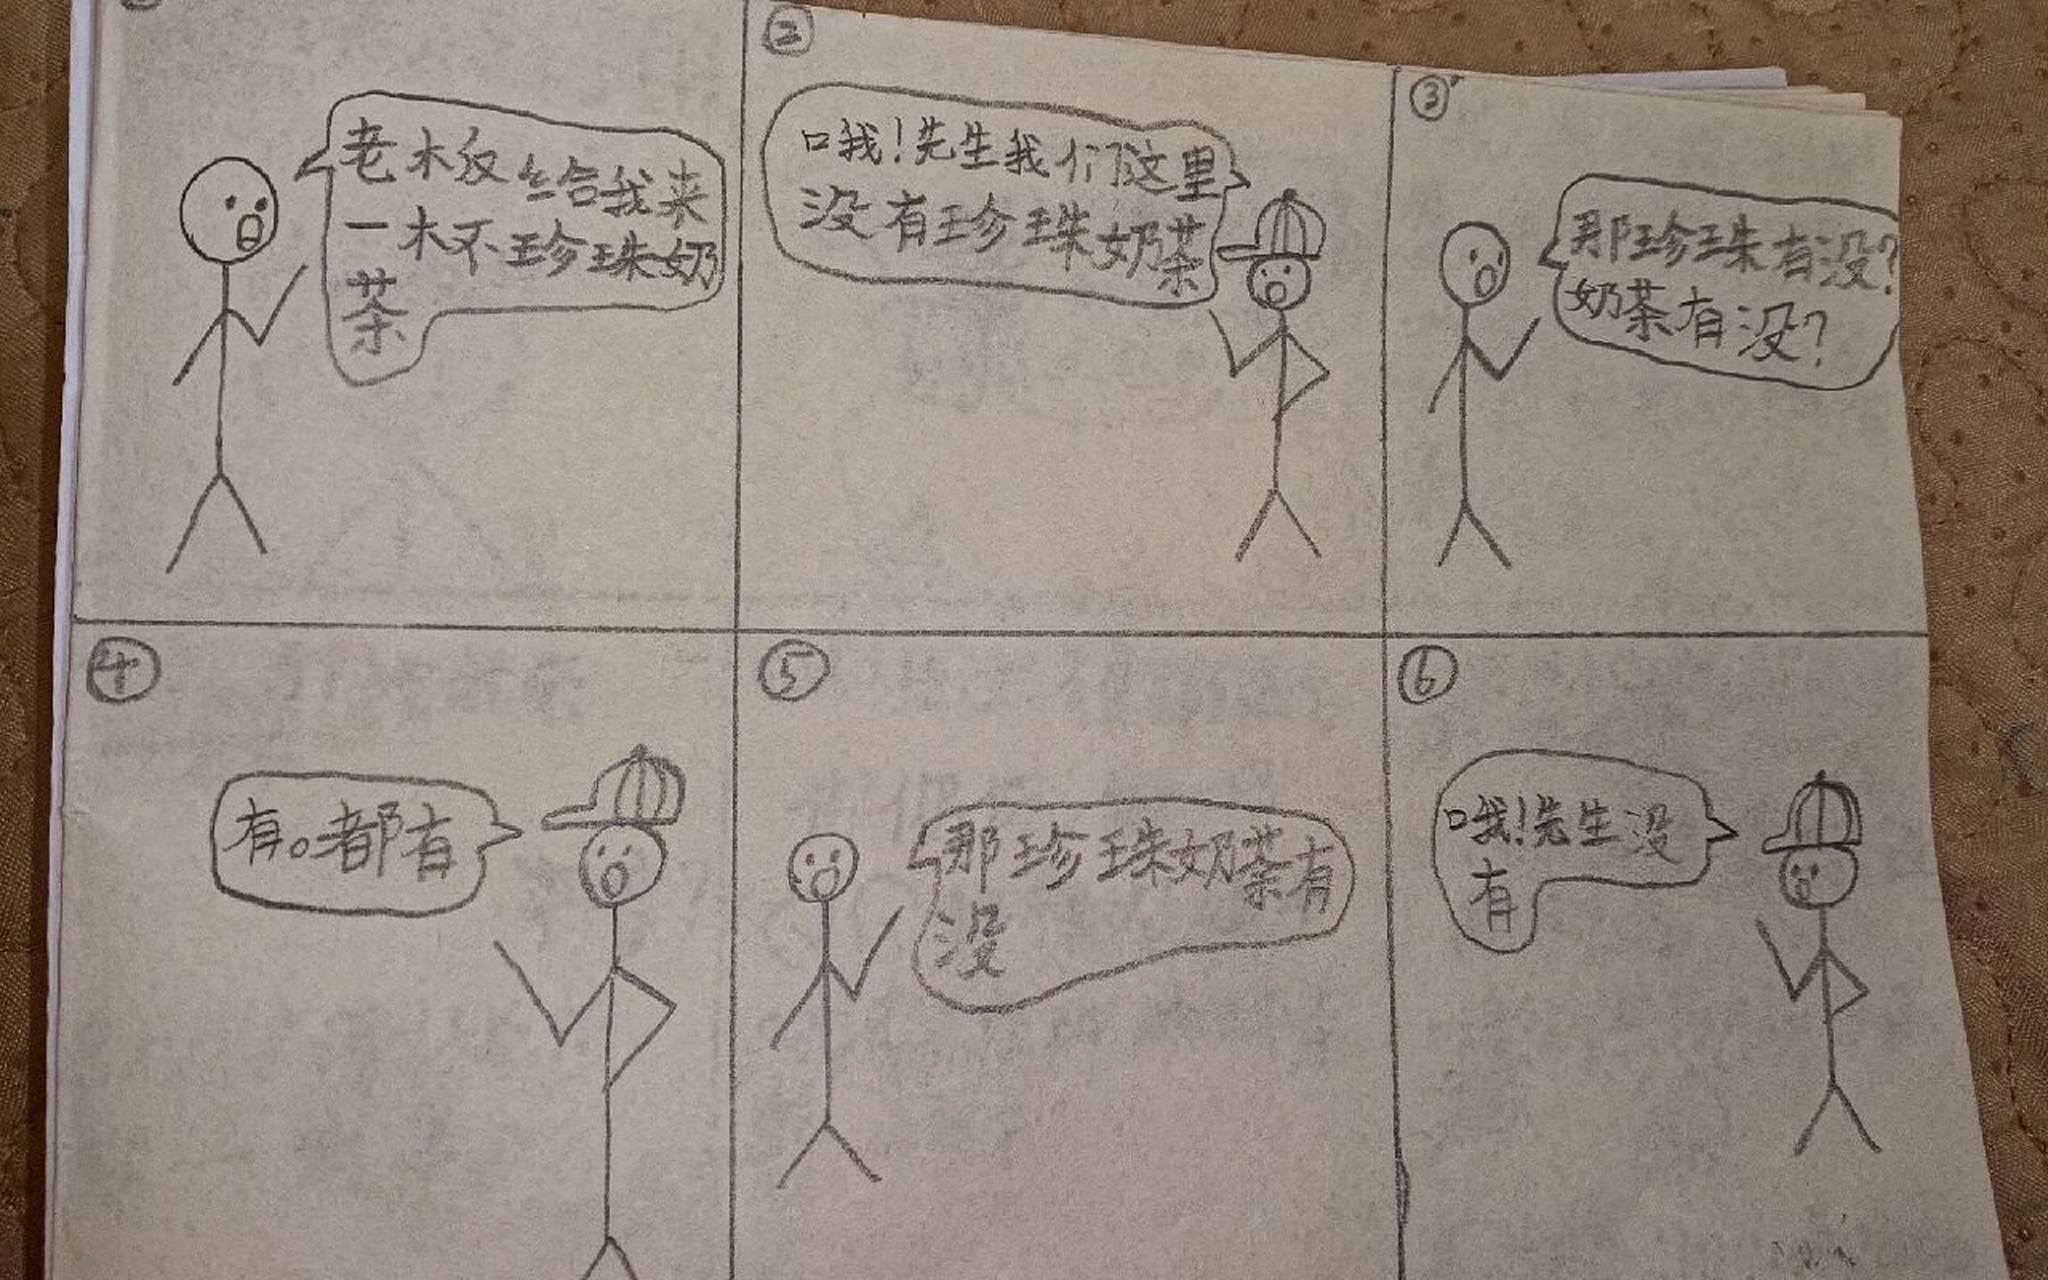 老板给我来
一杯珍珠奶
茶
②
哦!先生我们这里
没有珍珠奶茶
③
那珍珠有没?
奶茶有没?
④
有。都有
⑤
那珍珠奶茶有
没
⑥
哦!先生没
有